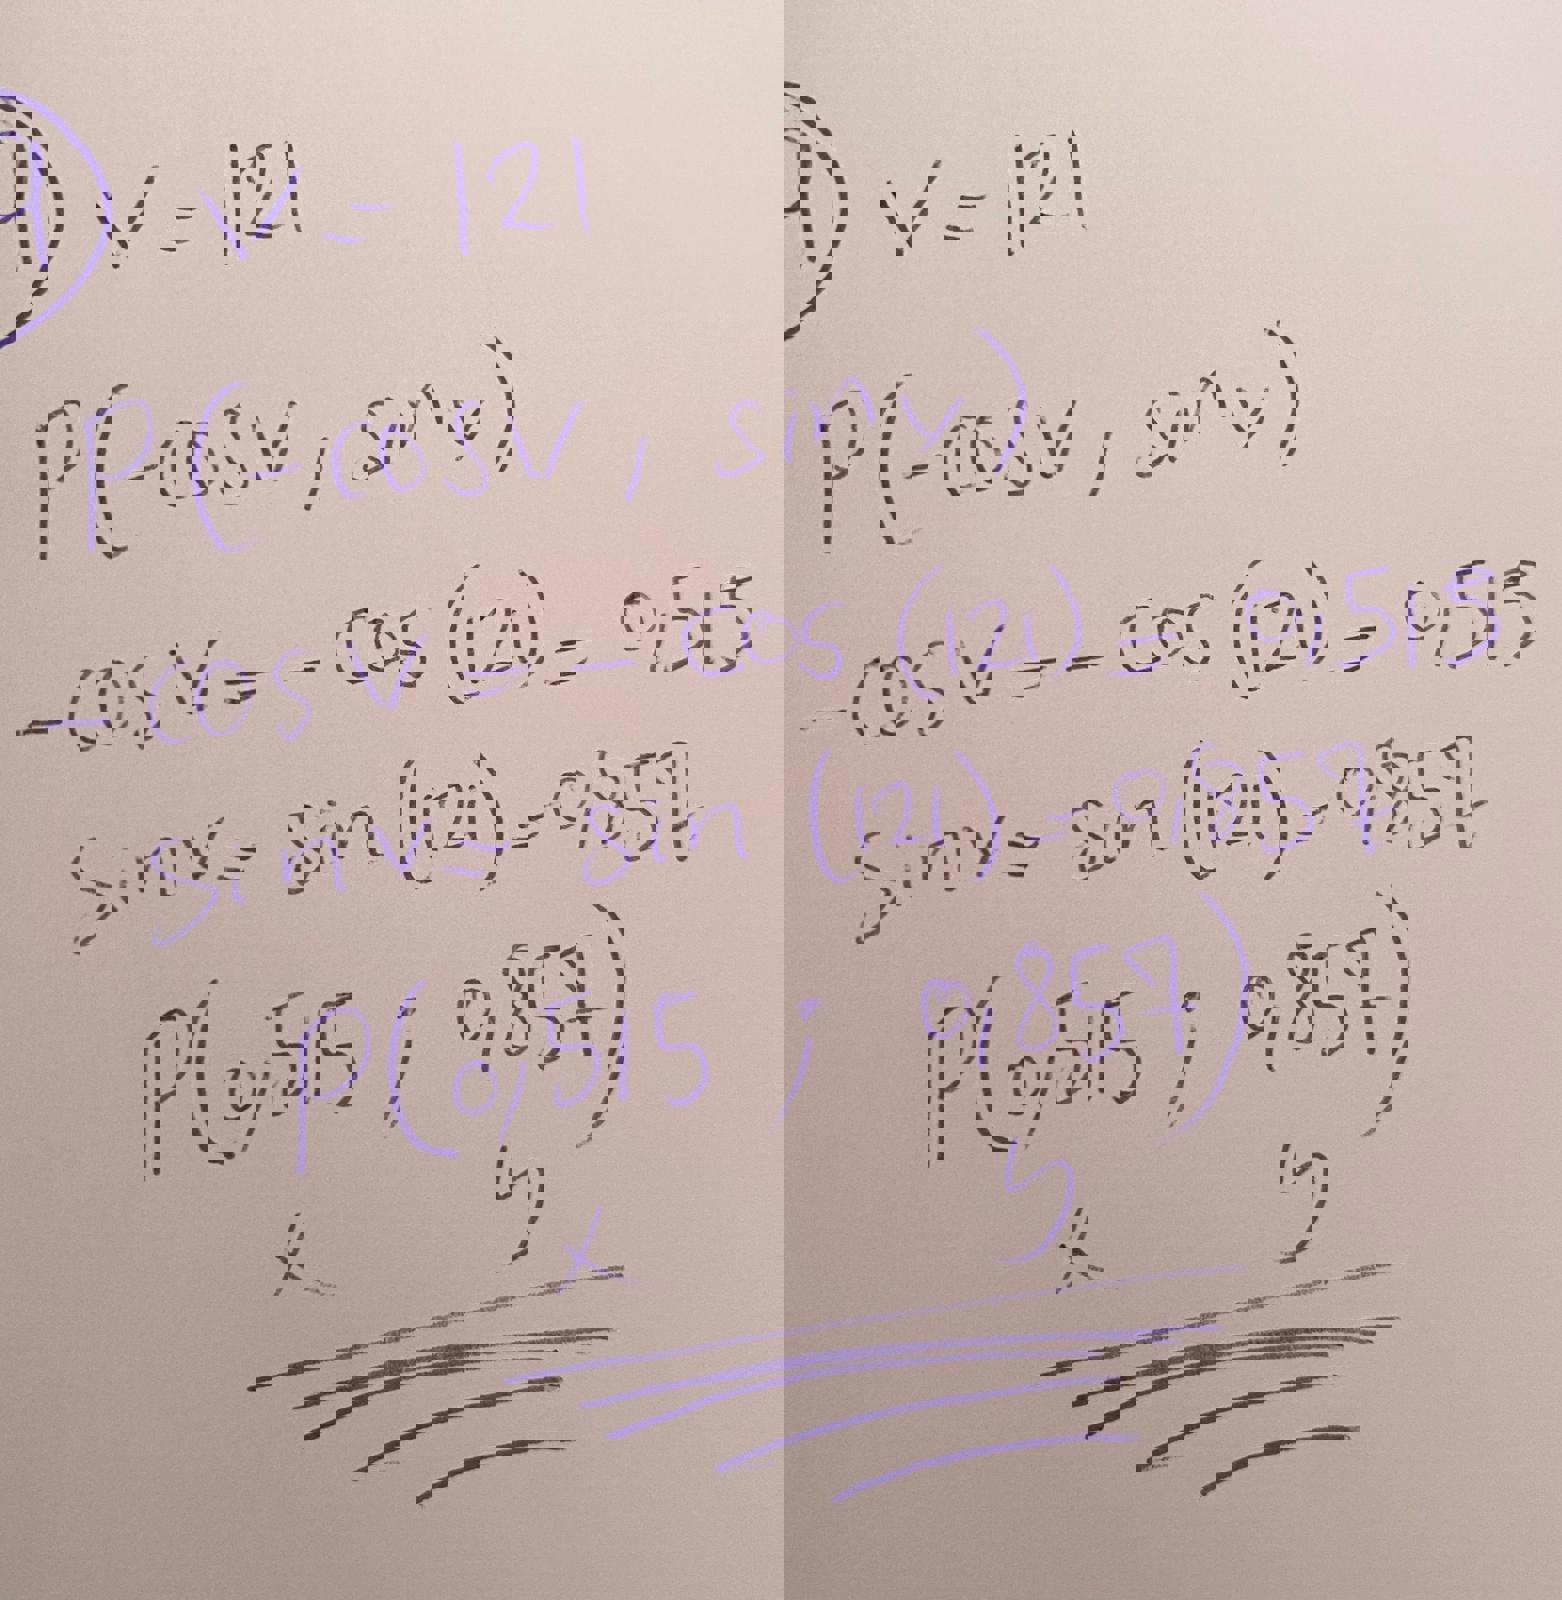 A) v = 121
P(-cosv, sinv)
-cosv = -cos(121) = 0,515
sinv = sin(121) = 0,857
P(0,515 ; 0,857)
x y